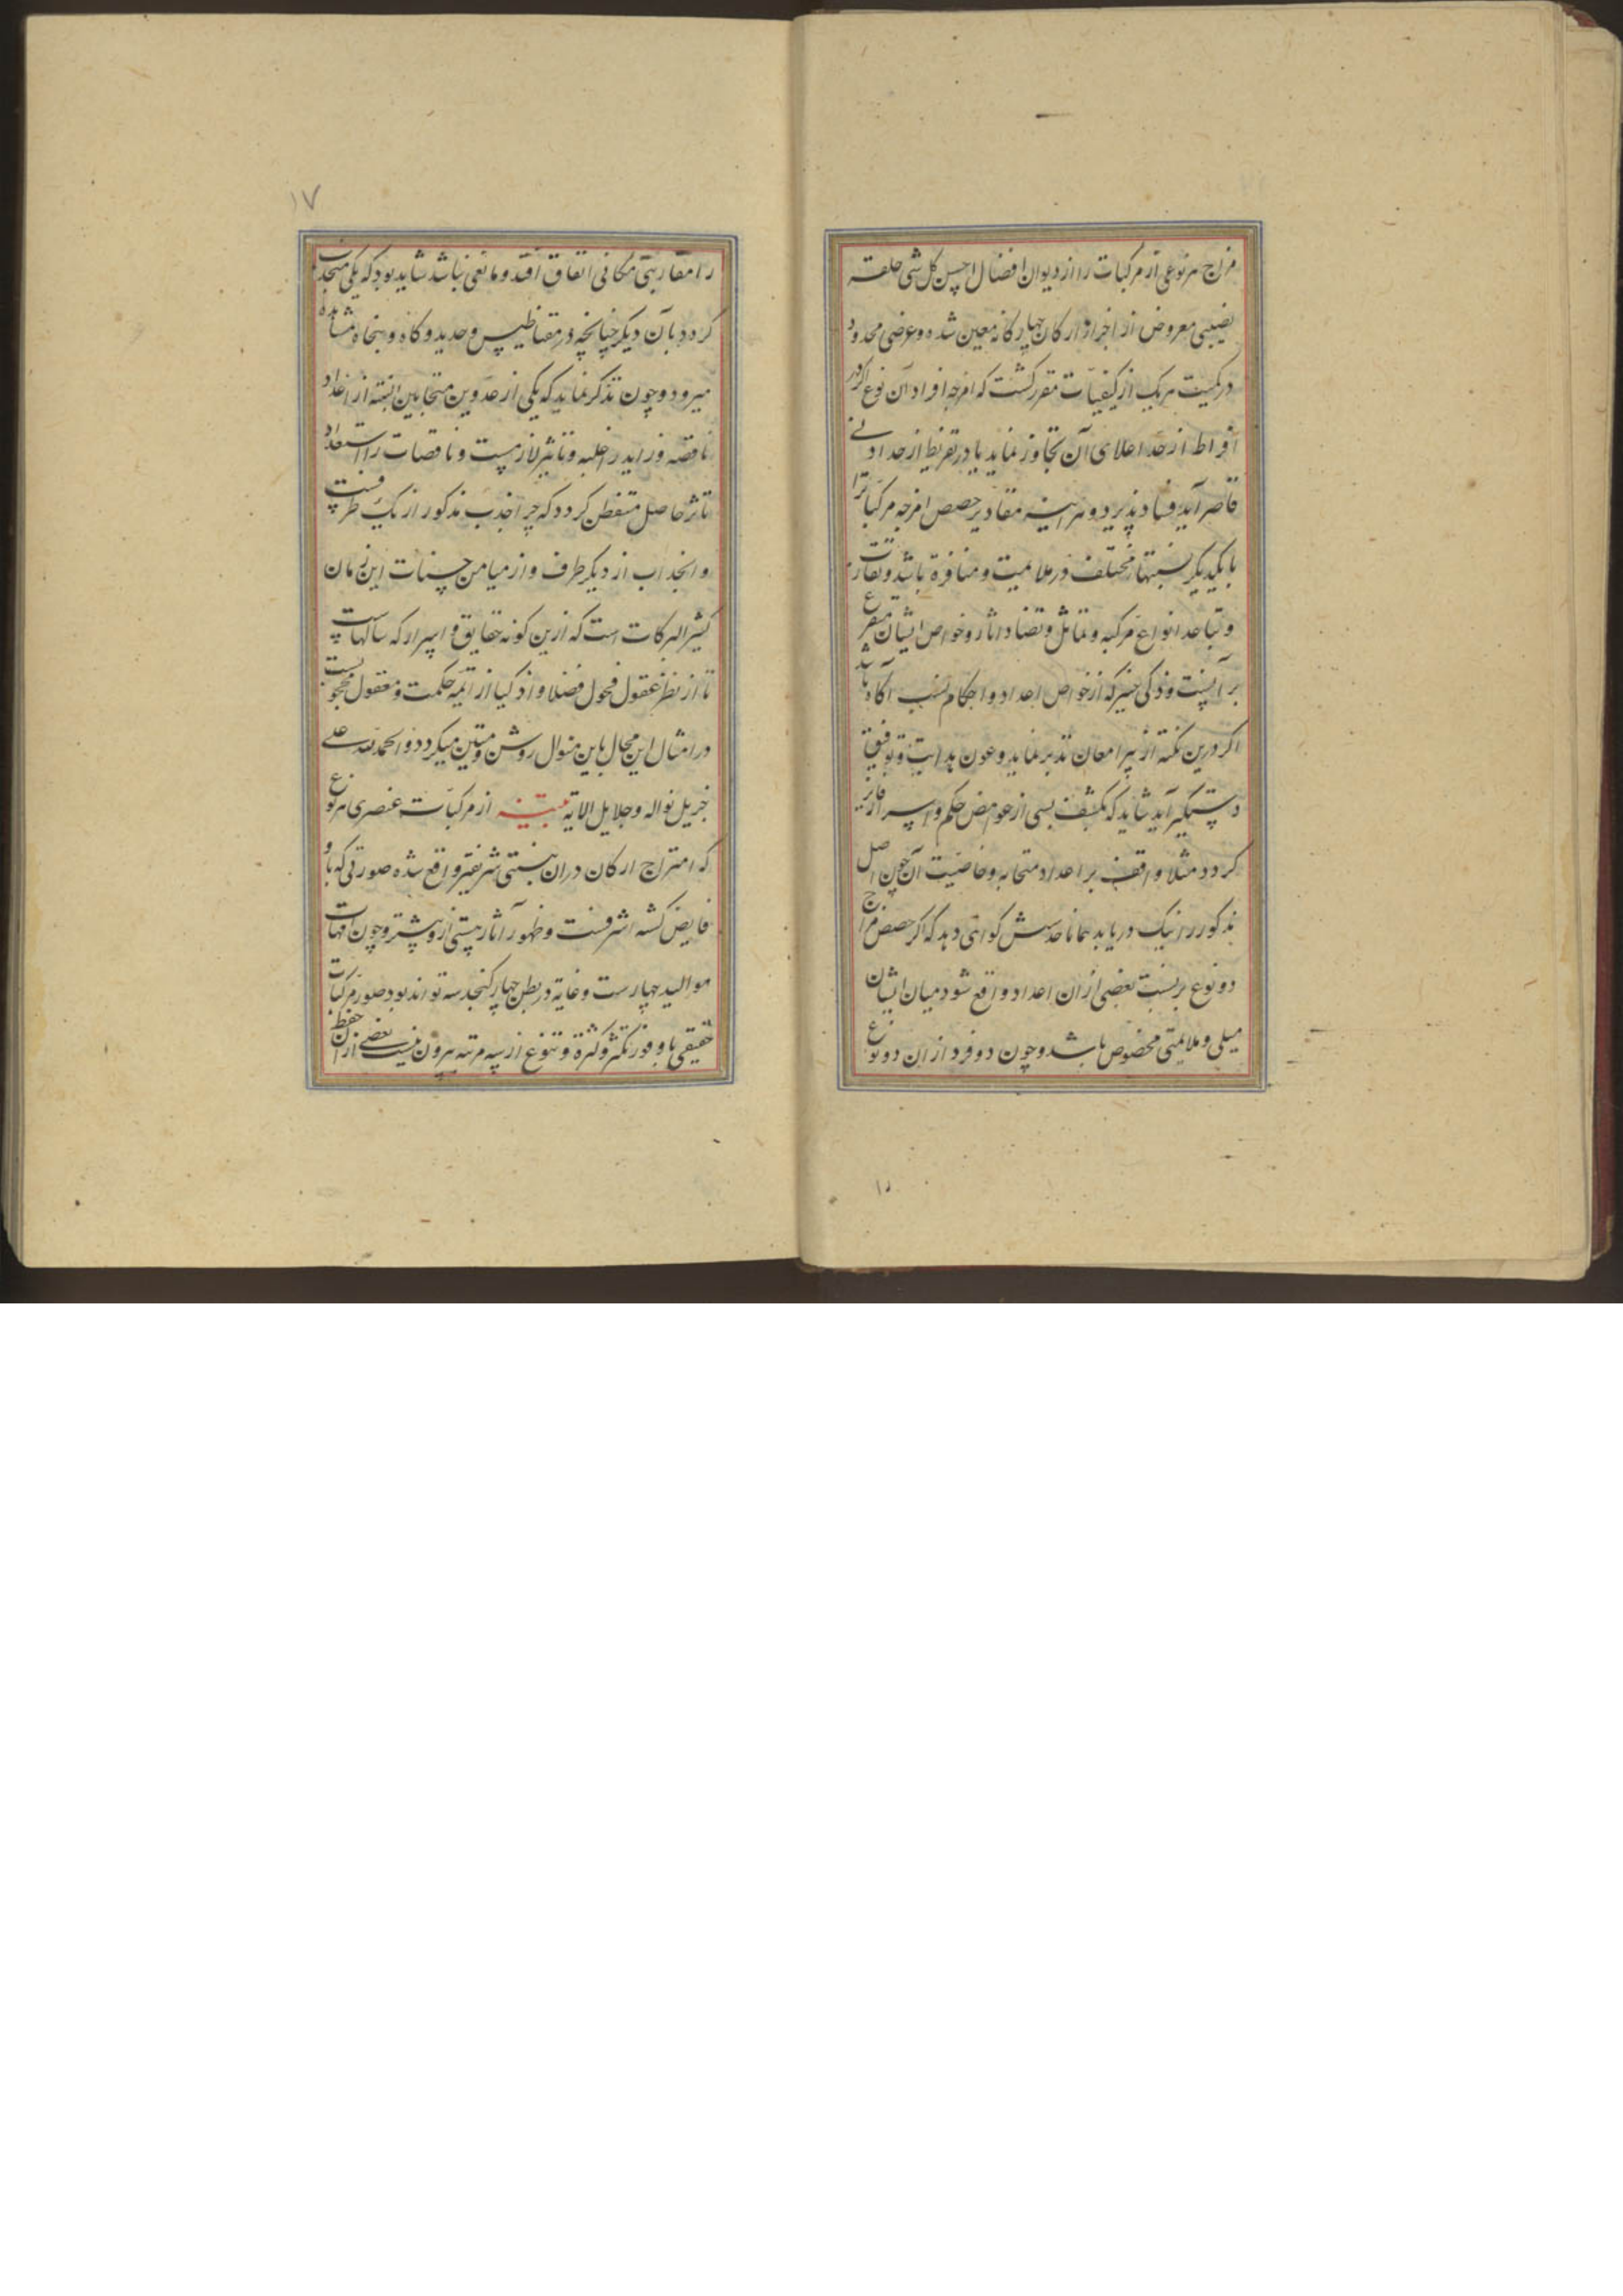 مزاج هر نوعی از مرکبات را از دیوان افضال احسن کل شی خلقه
نصیبی معروض از اجزاء ارکان چهارکانه معین شده و عرضی محدود
در کمیت هر یک از کیفیات مقرر کشت که امزجه افراد آن نوع اکر در
افراط از حد اعلای آن تجاوز نماید یا در تفریط از حد ادنی
قاصر آید فساد پذیرد و هر اینه مقادیر حصص امزجه مرکبات را
با یکدیکر نسبتهاء مختلف در ملایمت و منافرة باشد و تقارب
و تباعد انواع مرکبه و تماثل و تضاد اثار و خواص ایشان متفرع
بر آنست و ذکی خبیر که از خواص اعداد و احکام نسب آکاه باشد
اکر درین نکته از سر امعان تدبر نماید و عون هدایت و توفیق
دستکیر آید شاید که بکشف بسی از غوامض حکم و اسرار فایز
کردد مثلا واقف بر اعداد متحابه و خاصیت آن چون اصل
مذکور را نیک دریابد همانا حدسش کواهی دهد که اکر حصص مزاج
دو نوع بر نسبت بعضی از ان اعداد واقع شود میان ایشان
میلی و ملایمتی مخصوص باشد و چون دو فرد از ان دو نوع
۱۷
را مقاربتی مکانی اتفاق افتد و مانعی نباشد شاید بود که یکی منجذب
کردد بآن دیکر چنانچه در مقناطیس و حدید و کاه و بیخاه مشاهده
میرود و چون تذکر نماید که یکی از عددین متحابین البته از اعداد
ناقصه و زاید را غلبه و تاثیر لازمست و ناقصات را استعداد
تاثر حاصل متفطن کردد که چرا جذب مذکور از یک طرفست
و انجذاب از دیکر طرف و از میامن حسنات این زمان
کثیر البرکات است که ازین کونه حقایق و اسرار که سالهاست
تا از نظر عقول فحول فضلا و اذکیا از ائمه حکمت و معقول محجوبست
در امثال این محال باین منوال روشن و مبین میکردد و الحمد لله علی
جزیل نواله و جلایل الایه تنبیه از مرکبات عنصری هر نوع
که امتزاج ارکان دران بنسبتی شریفتر واقع شده صورتی که باو
فایض کشته اشرفست و ظهور آثار هستی ازو بیشتر و چون امهات
موالید چهارست و غایة در بطن چهار کنجد سه تواند بود صور مرکبات
حقیقی با وفور تکثر و کثرة و تنوع از سه مرتبه بیرون نیست بعضی از ان حفظ